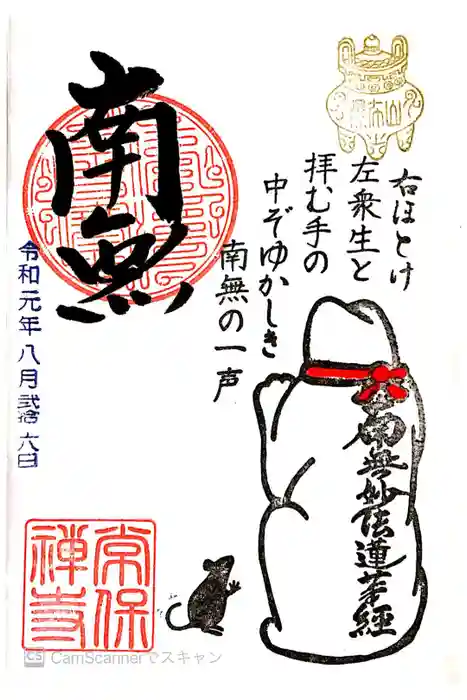 右ほとけ
左衆生と
拝む手の
中ぞゆかしき
南無の一声
南無
令和元年八月弐拾六日
南無妙法蓮華経
常保
禅寺
CS CamScannerでスキャン